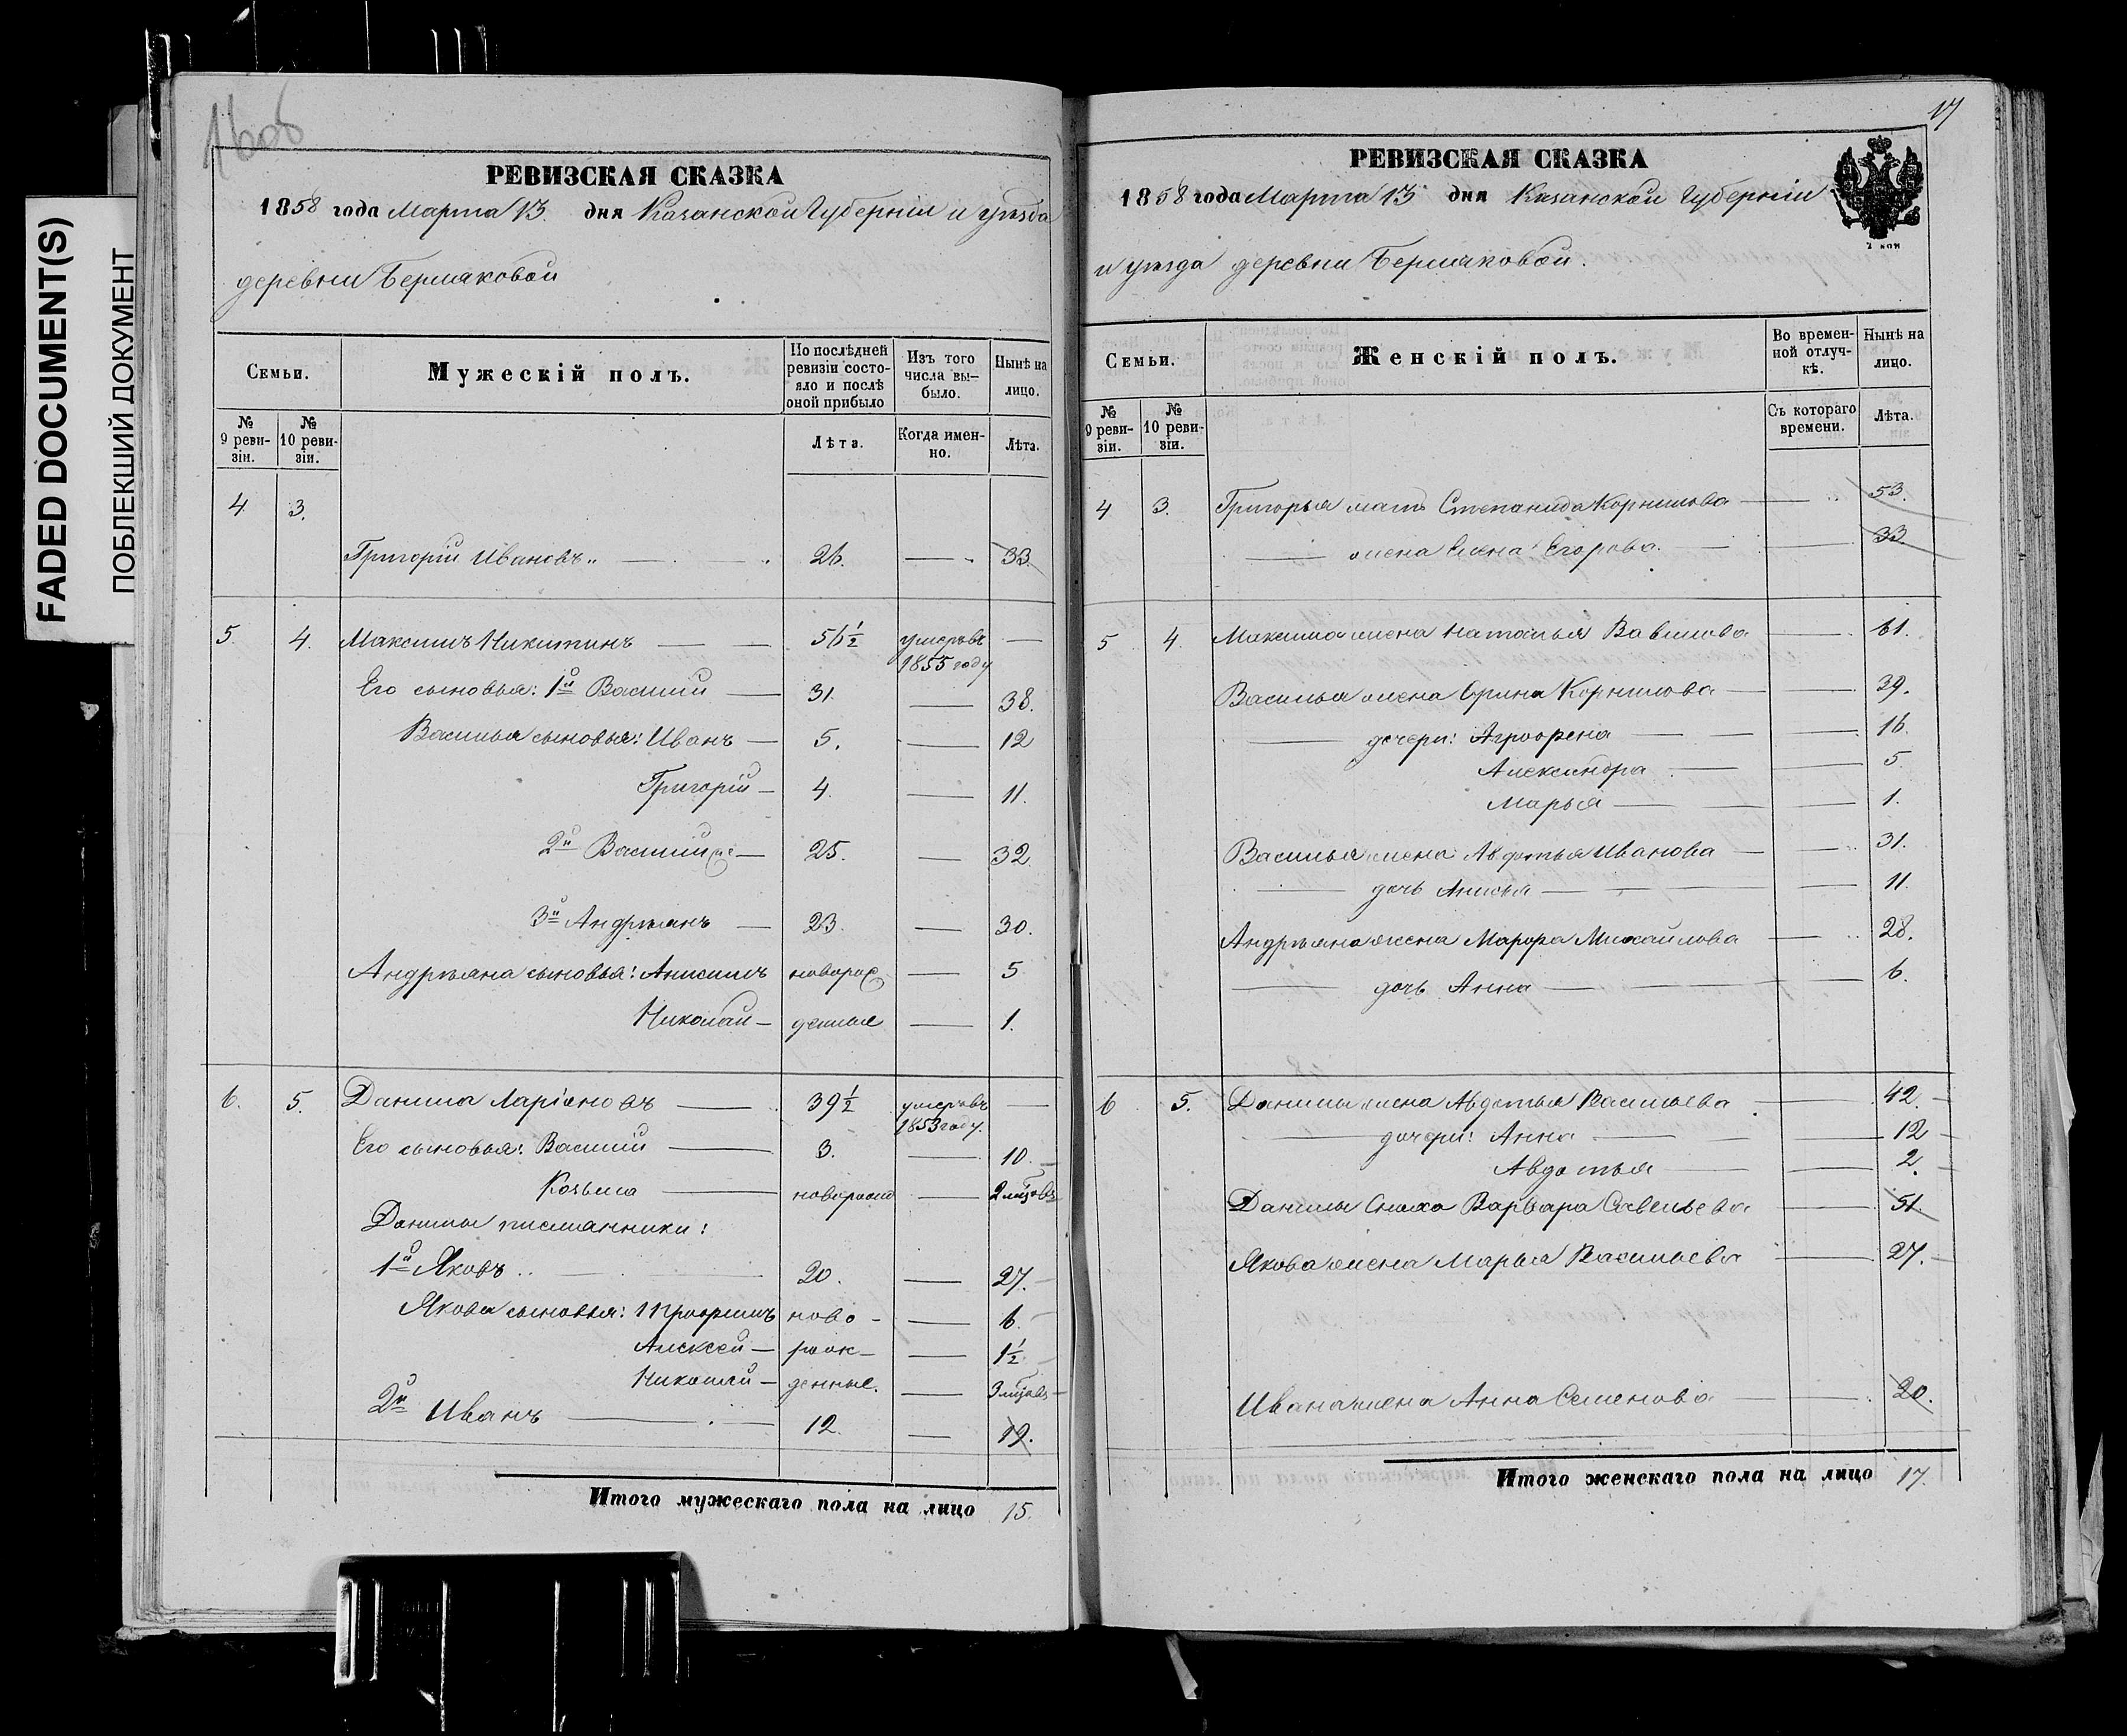 FADED DOCUMENT(S)
ПОБЛЕКШИЙ ДОКУМЕНТ
16об
РЕВИЗСКАЯ СКАЗКА
1858 года Марта 13. дня Казанской Губерніи и уѣзда
деревни Бермяковой
Семьи.
Мужескій полъ.
По послѣдней ревизіи состояло и послѣ оной прибыло
Изъ того числа выбыло.
Нынѣ на лицо.
№ 9 ревизіи.
№ 10 ревизіи.
Лѣта.
Когда именно.
Лѣта.
4 3.
Григорій Ивановъ 26. — 33.
5. 4. Максимъ Никитинъ — 56½ умеръ въ 1855 году —
Его сыновья: 1й Василий — 31. — 38.
Василья сыновья: Иванъ — 5. — 12
Григорій — 4. — 11.
2й Василий — 25. — 32
3й Андреянъ — 23. — 30.
Андреяна сыновья: Анисимъ новорож — 5
Николай — денные — 1.
6. 5. Данила Ларіоновъ — 39½ умеръ въ 1853 году. —
Его сыновья: Василий — 3. — 10.
Козьма — новорожд — 2 мѣсяцовъ
Данилы племянники:
1й Яковъ 20. — 27.
Якова сыновья: Трофимъ ново- — 6.
Алексей — рож- — 1½
Николай — денные. — 3 мѣсяцовъ
2й Иванъ — 12. — 19.
Итого мужескаго пола на лицо 15.
17
РЕВИЗСКАЯ СКАЗКА
1858 года Марта 13 дня Казанской Губерніи
и уѣзда деревни Бермяковой.
2 коп
Семьи.
Женскій полъ.
Во временной отлучкѣ.
Нынѣ на лицо.
№ 9 ревизіи.
№ 10 ревизіи.
Съ котораго времени.
Лѣта.
4 3. Григорья мать Степанида Корнилова — 53.
— жена Елена Егорова. — 33.
5 4. Максима жена Наталья Вавилова — 61.
Василья жена Орина Корнилова — 39.
— дочери: Аграфена — 16.
Александра — 5
Марья — 1.
Василья жена Авдотья Иванова — 31.
— дочь Анисья — 11.
Андреяна жена Марфа Михайлова — 28.
— дочь Анна — 6.
6 5. Данилы жена Авдотья Васильева — 42.
— дочери: Анна — 12
Авдотья — 2.
Данилы Сноха Варвара Савельева — 51.
Якова жена Марья Васильева — 27.
Ивана жена Анна Семенова — 20.
Итого женскаго пола на лицо 17.